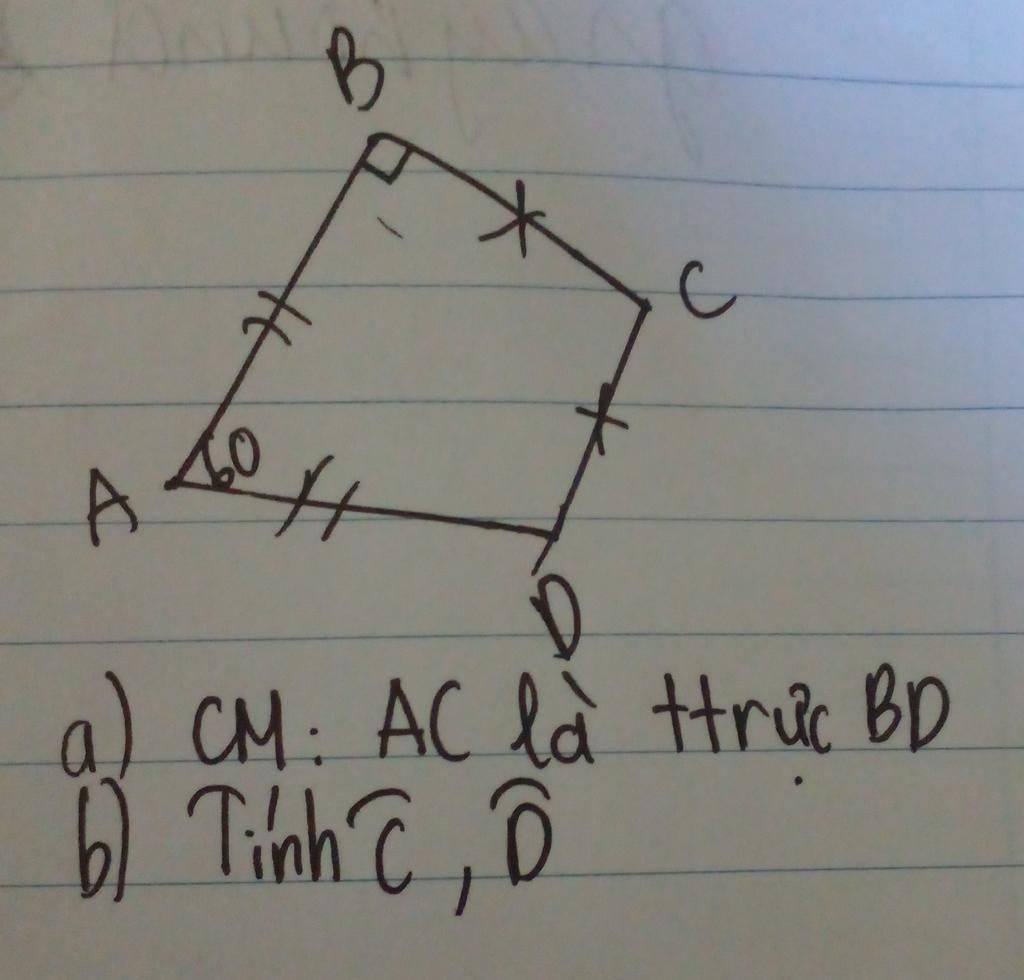 B
C
60
A
D
a) CM: AC là ttrực BD
b) Tính Ĉ, D̂